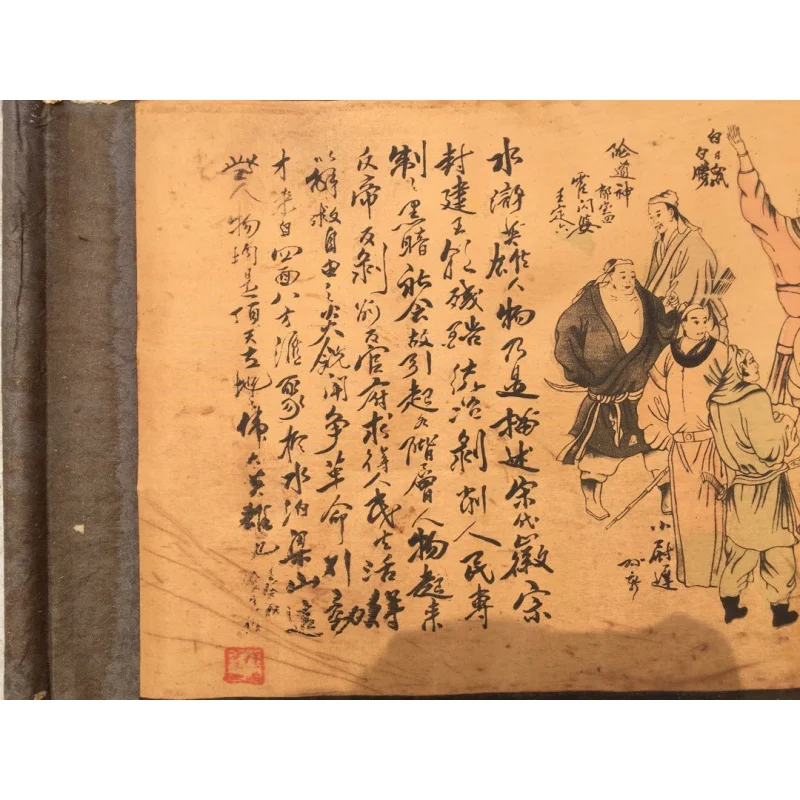 白日鼠
白勝
險道神
霍闪婆
王定六
小尉遲
孙新
水滸英雄人物乃是描述宋代徽宗
封建王朝殘酷統治剝削人民專
制之黑暗社會故引起各階層人物起來
反帝反剝削反官府求得人民生活得
以解救自由之火 革命行動
才來自四面八方匯聚於水泊梁山這
些人物均是頂天立地偉大英雄也